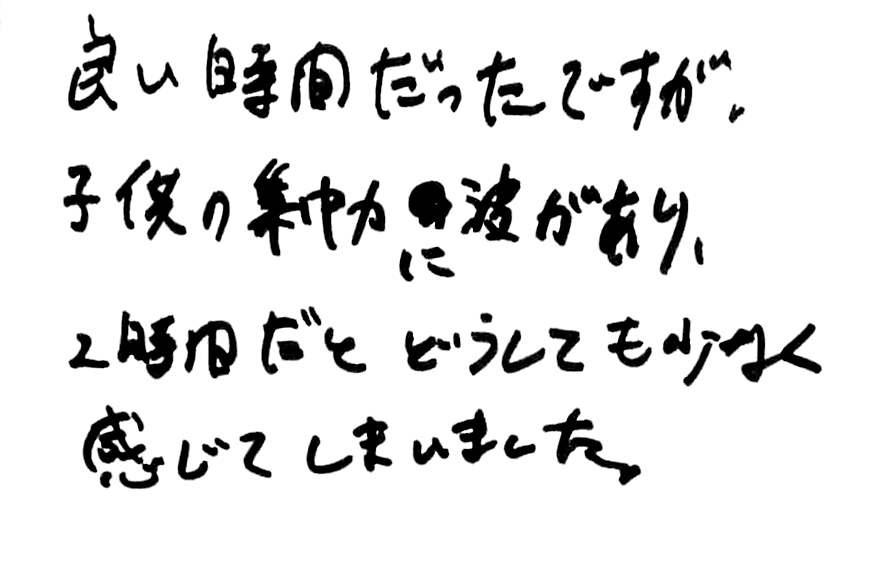 良い時間だったですが、
子供の集中力に波があり、
2時間だとどうしても少なく
感じてしまいました。